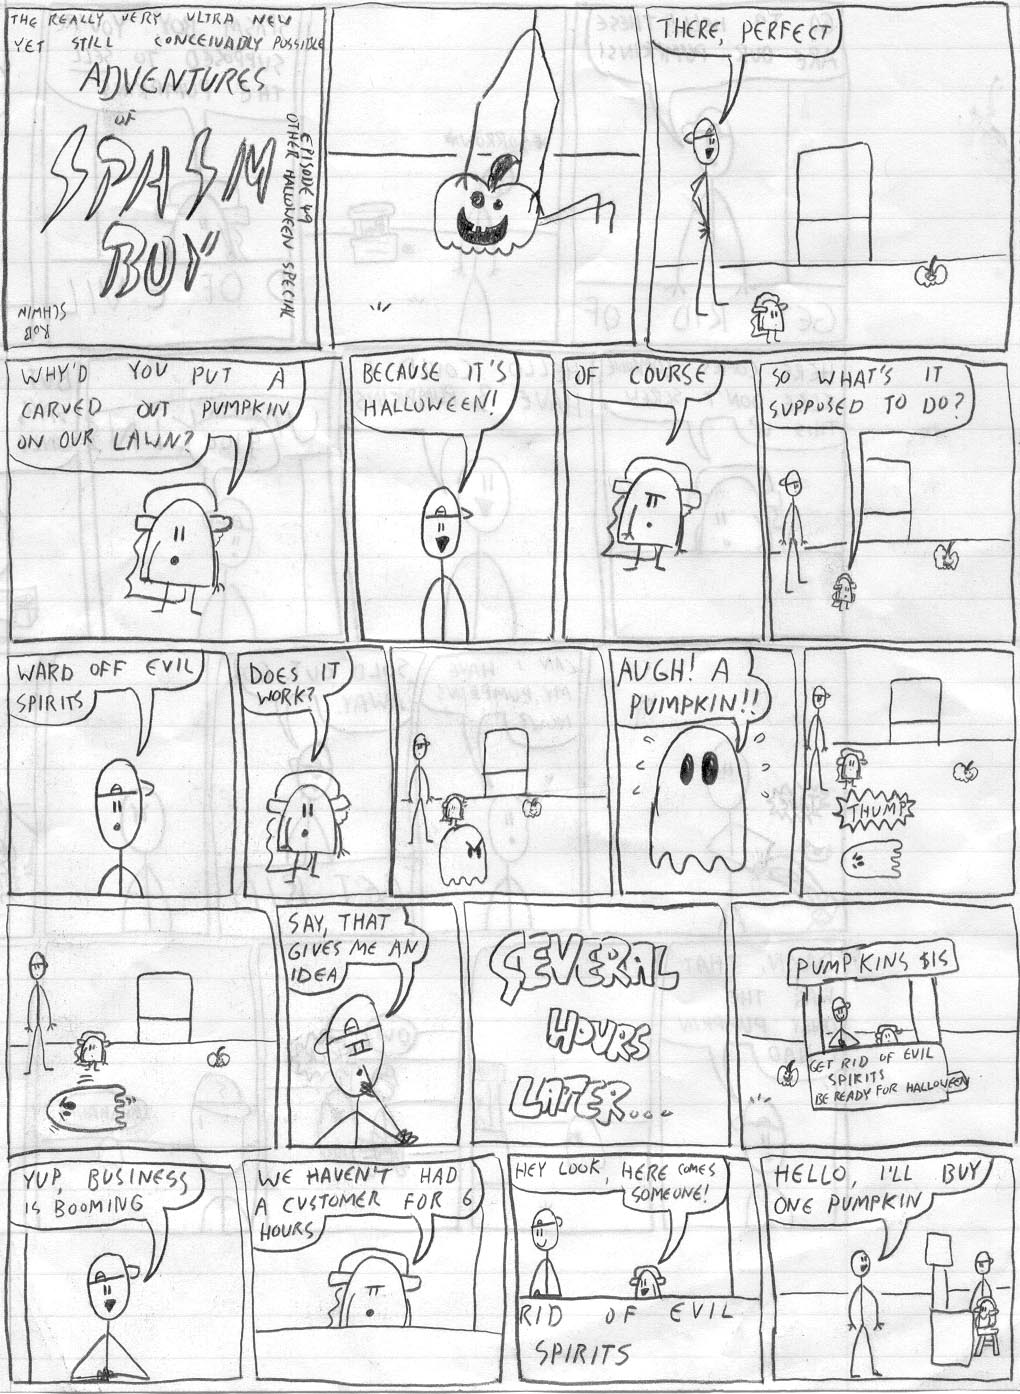 THE REALLY VERY ULTRA NEW
YET STILL CONCEIVABLY POSSIBLE
ADVENTURES
OF
SPASM
BOY
EPISODE 49
OTHER HALLOWEEN SPECIAL
ROB
SCHWIN
THERE, PERFECT
WHY'D YOU PUT A
CARVED OUT PUMPKIN
ON OUR LAWN?
BECAUSE IT'S
HALLOWEEN!
OF COURSE
SO WHAT'S IT
SUPPOSED TO DO?
WARD OFF EVIL
SPIRITS
DOES IT
WORK?
AUGH! A
PUMPKIN!!
THUMP
SAY, THAT
GIVES ME AN
IDEA
SEVERAL
HOURS
LATER...
PUMPKINS $15
GET RID OF EVIL
SPIRITS
BE READY FOR HALLOWEEN
YUP, BUSINESS
IS BOOMING
WE HAVEN'T HAD
A CUSTOMER FOR 6
HOURS
HEY LOOK, HERE COMES
SOMEONE!
RID OF EVIL
SPIRITS
HELLO, I'LL BUY
ONE PUMPKIN